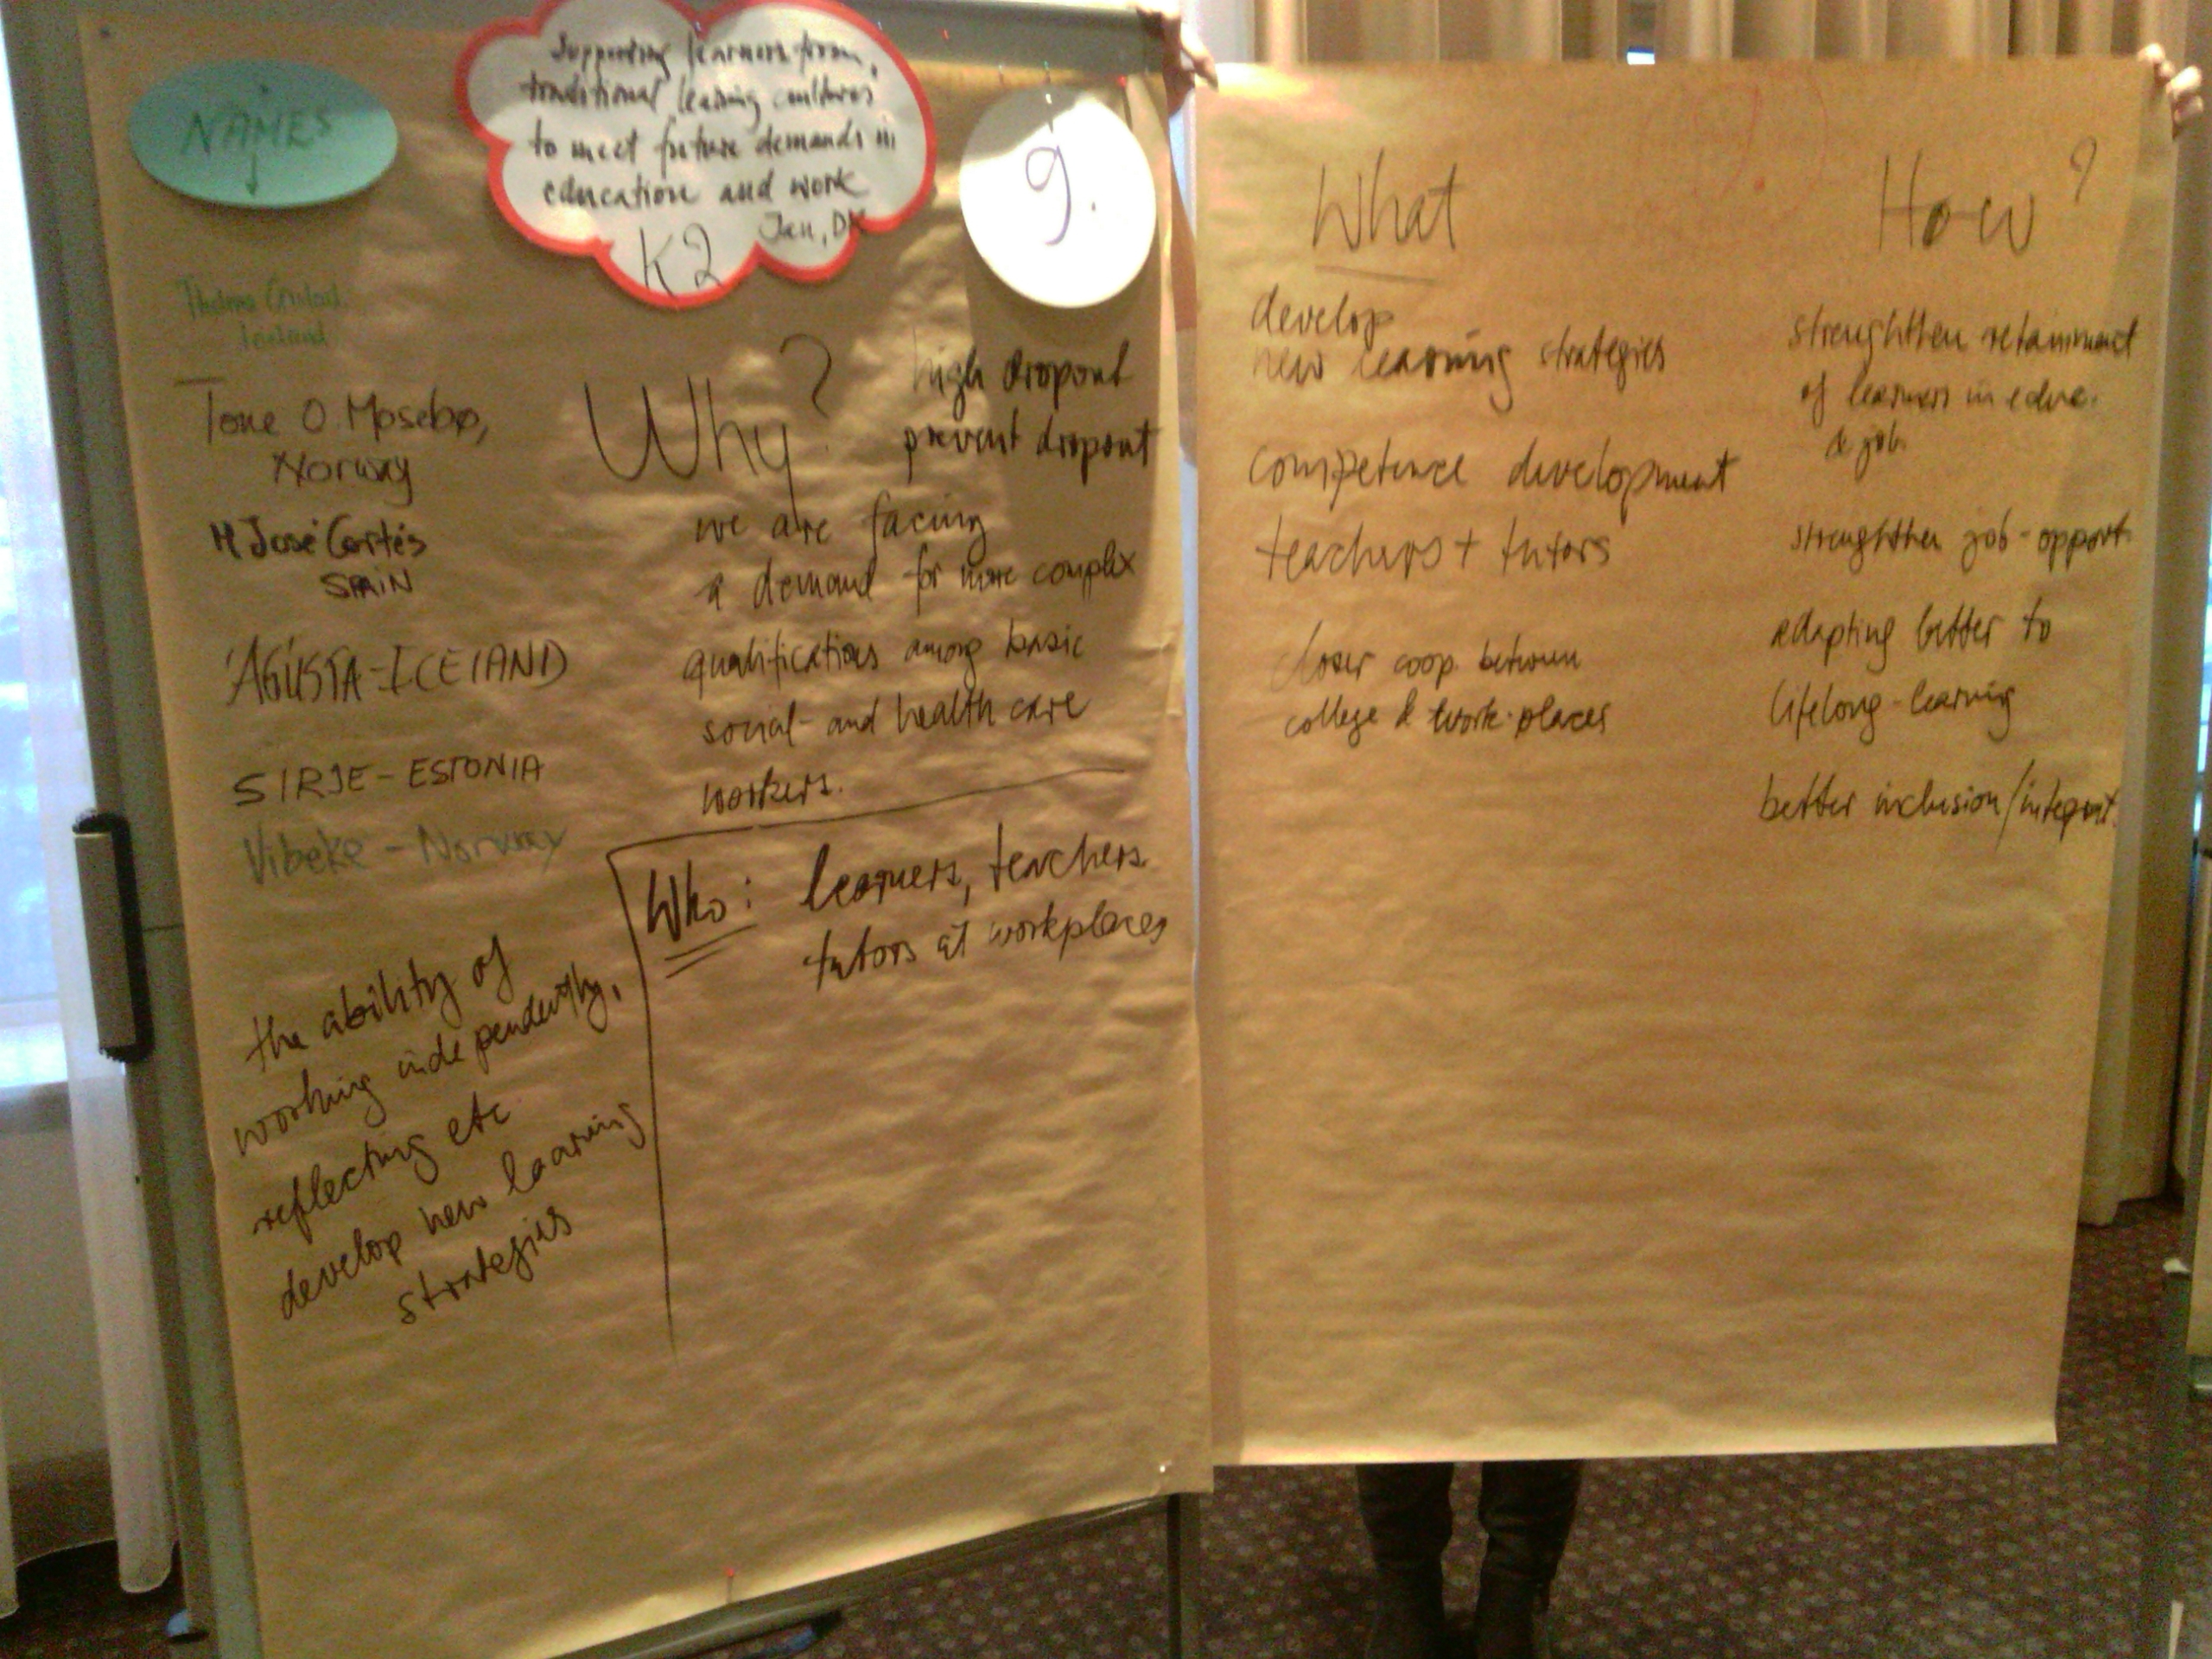 NAMES
Supporting learners from
traditional learning cultures
to meet future demands in
education and work
Jan, DK
K2
9.
Iceland
Tone O. Mosebø,
Norway
M José Cortés
SPAIN
ÁGÚSTA - ICELAND
SIRJE - ESTONIA
Vibeke - Norway
the ability of
working independently,
reflecting etc.
develop new learning
strategies
Why?
high dropout
prevent dropout
we are facing
a demand for more complex
qualifications among basic
social- and health care
workers.
Who: learners, teachers
tutors at workplaces
What
develop
new learning strategies
competence development
teachers + tutors
closer coop. between
college & work-places
How?
strenghthen retainment
of learners in educ.
& job.
strenghthen job-opport.
adapting better to
lifelong-learning
better inclusion/integrat.